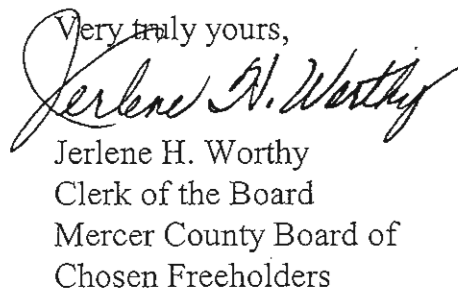 Very truly yours,
Jerlene H. Worthy
Jerlene H. Worthy
Clerk of the Board
Mercer County Board of
Chosen Freeholders